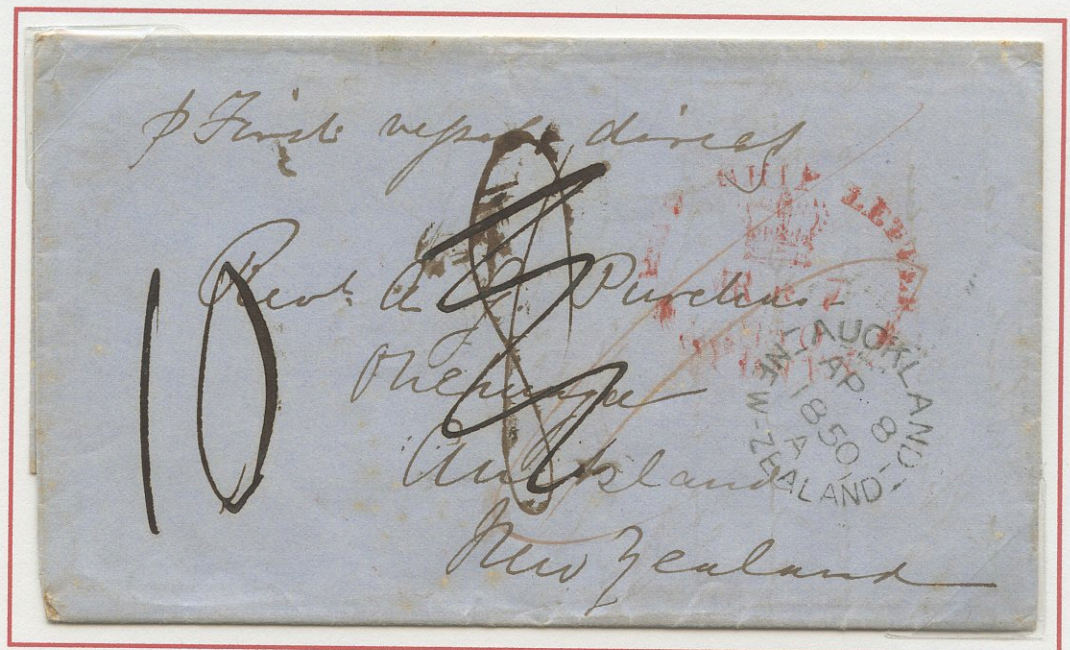 p First vessel direct
Revd A. G. Purchas
Onehunga
Auckland
New Zealand
10
SHIP LETTER
AUCKLAND
AP 8
1850
A
NEW-ZEALAND